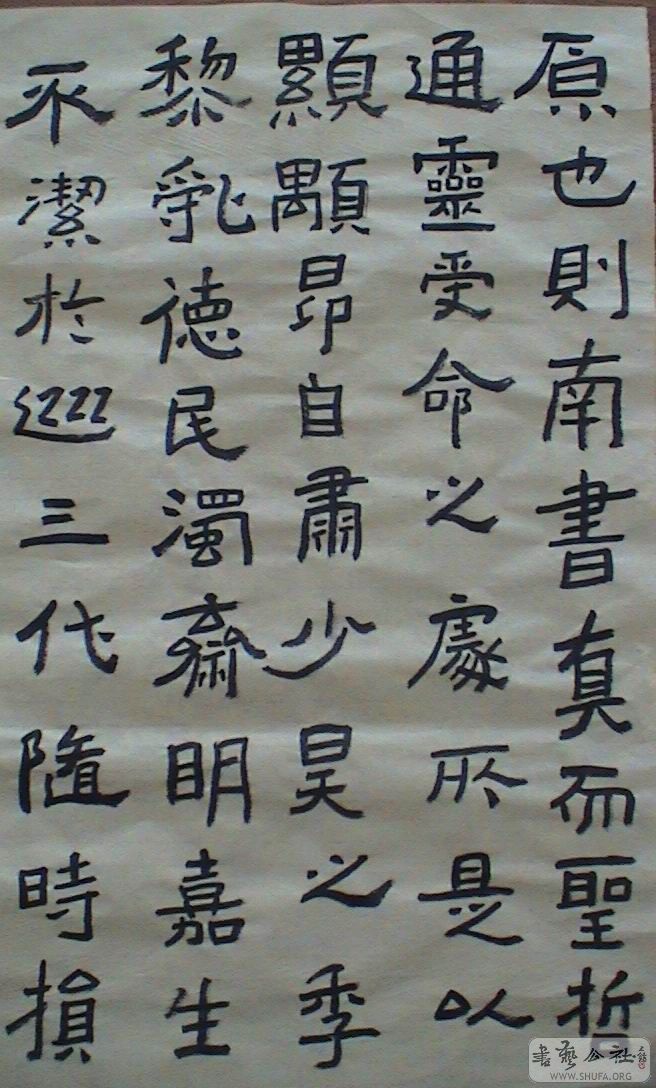 原也則南書真而聖哲
通靈受命之處所是以
顯顒昂自肅少昊之季
黎亂德民濁齋明嘉生
不潔於巡三代隨時損
書藝公社
WWW.SHUFA.ORG